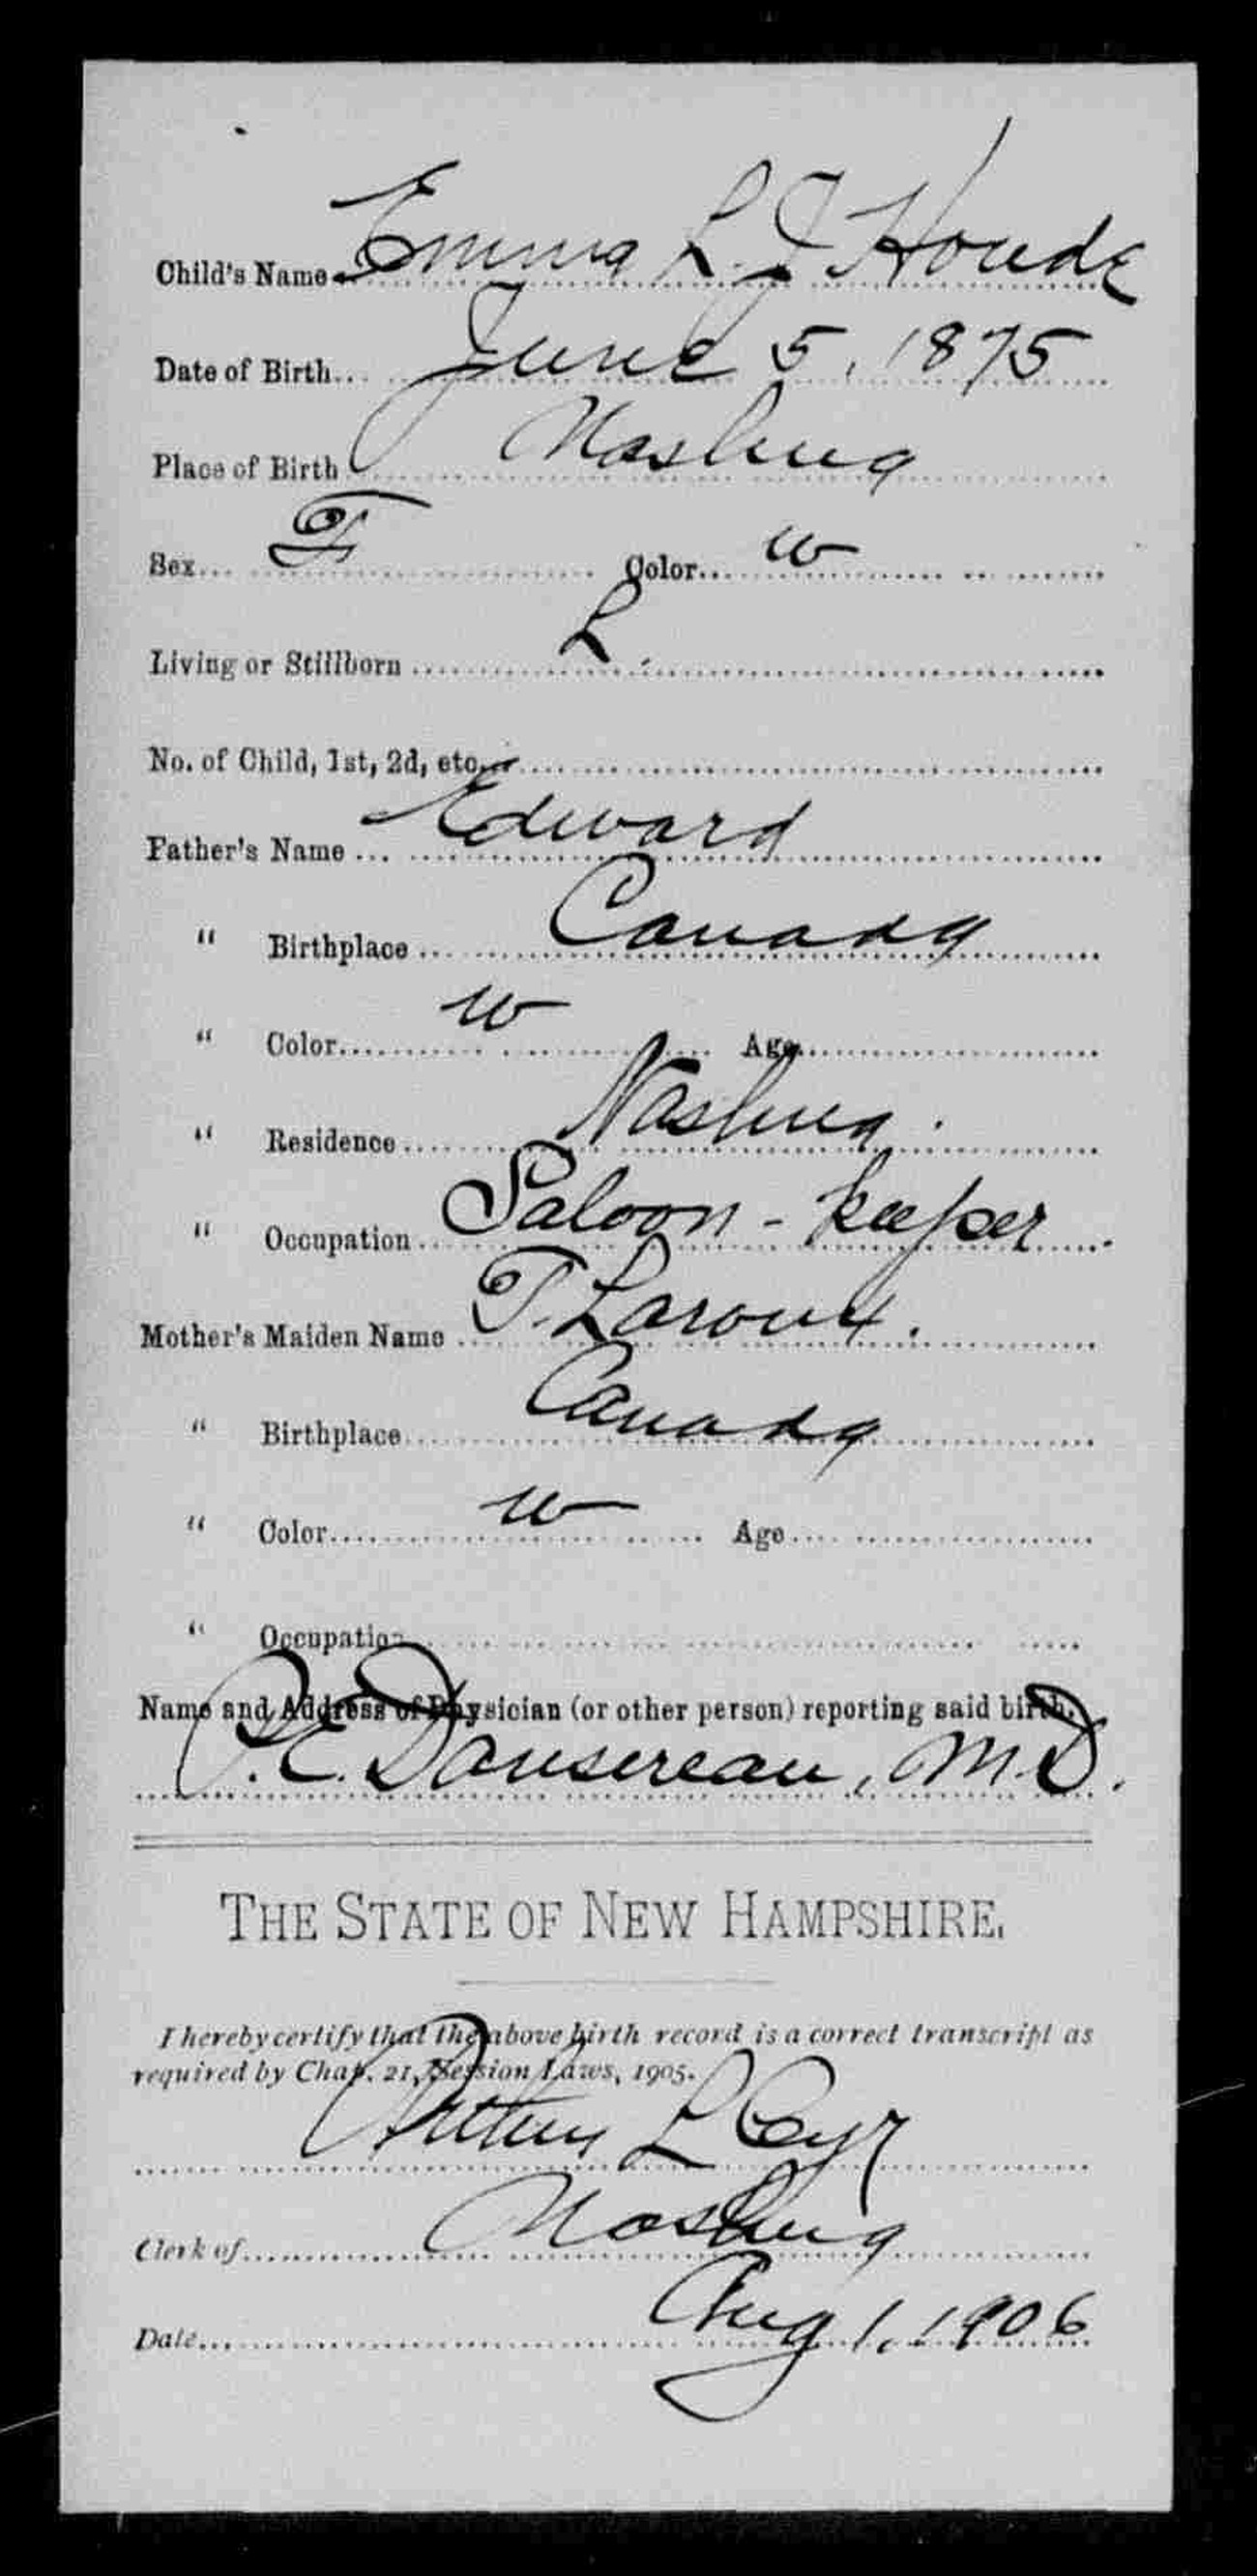 Child's Name Emma L. J Houde
Date of Birth June 5, 1875
Place of Birth Nashua
Sex F Color w
Living or Stillborn L.
No. of Child, 1st, 2d, etc.
Father's Name Edward
" Birthplace Canada
" Color w Age
" Residence Nashua.
" Occupation Saloon-keeper
Mother's Maiden Name T. Laroux.
" Birthplace Canada
" Color w Age
" Occupation
Name and Address of Physician (or other person) reporting said birth.
P. E. Dansereau, M.D.
THE STATE OF NEW HAMPSHIRE.
I hereby certify that the above birth record is a correct transcript as
required by Chap. 21, Session Laws, 1905.
Arthur L Cyr
Clerk of Nashua
Date Aug 1, 1906